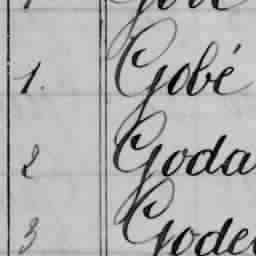 1. Gobé
2 Goda
3 Gode